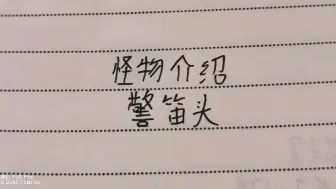 怪物介绍
警笛头